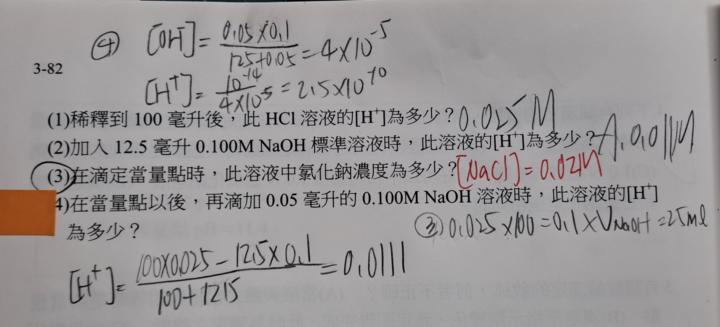 ④ [OH⁻]= 0.05×0.1 / 125+0.05 = 4×10⁻⁵
3-82
[H⁺]= 10⁻¹⁴ / 4×10⁻⁵ = 2.5×10⁻¹⁰
(1)稀釋到 100 毫升後，此 HCl 溶液的[H⁺]為多少？0.025M
(2)加入 12.5 毫升 0.100M NaOH 標準溶液時，此溶液的[H⁺]為多少？ 0.011M
(3)在滴定當量點時，此溶液中氯化鈉濃度為多少？[NaCl]=0.02M
4)在當量點以後，再滴加 0.05 毫升的 0.100M NaOH 溶液時，此溶液的[H⁺]
為多少？
③ 0.025×100=0.1×V NaOH =25ml
[H⁺]= 100×0.025-12.5×0.1 / 100+12.5 =0.0111